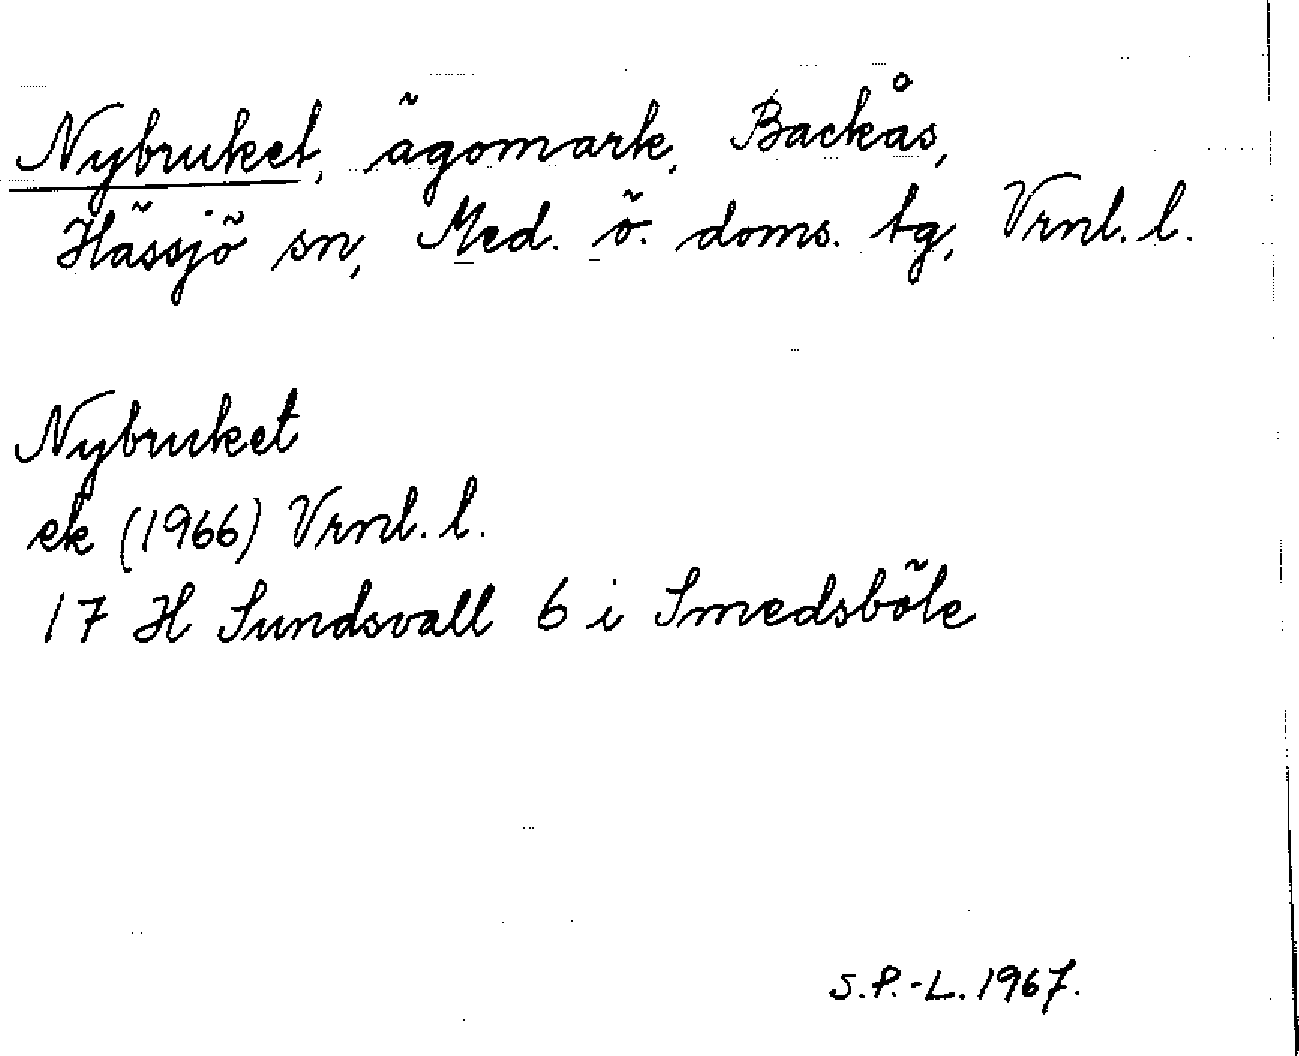 Nybruket, ägomark, Backås,
Hässjö sn, Med. ö. doms. tg, Vrnl. l.
Nybruket
ek (1966) Vrnl. l.
17 H Sundsvall 6 i Smedsböle
S.P.-L. 1967.